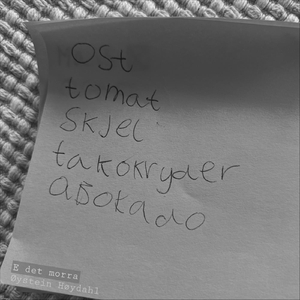 OSt
tomat
SKJel
takokryder
aBokado
E det morra
Øystein Høydahl